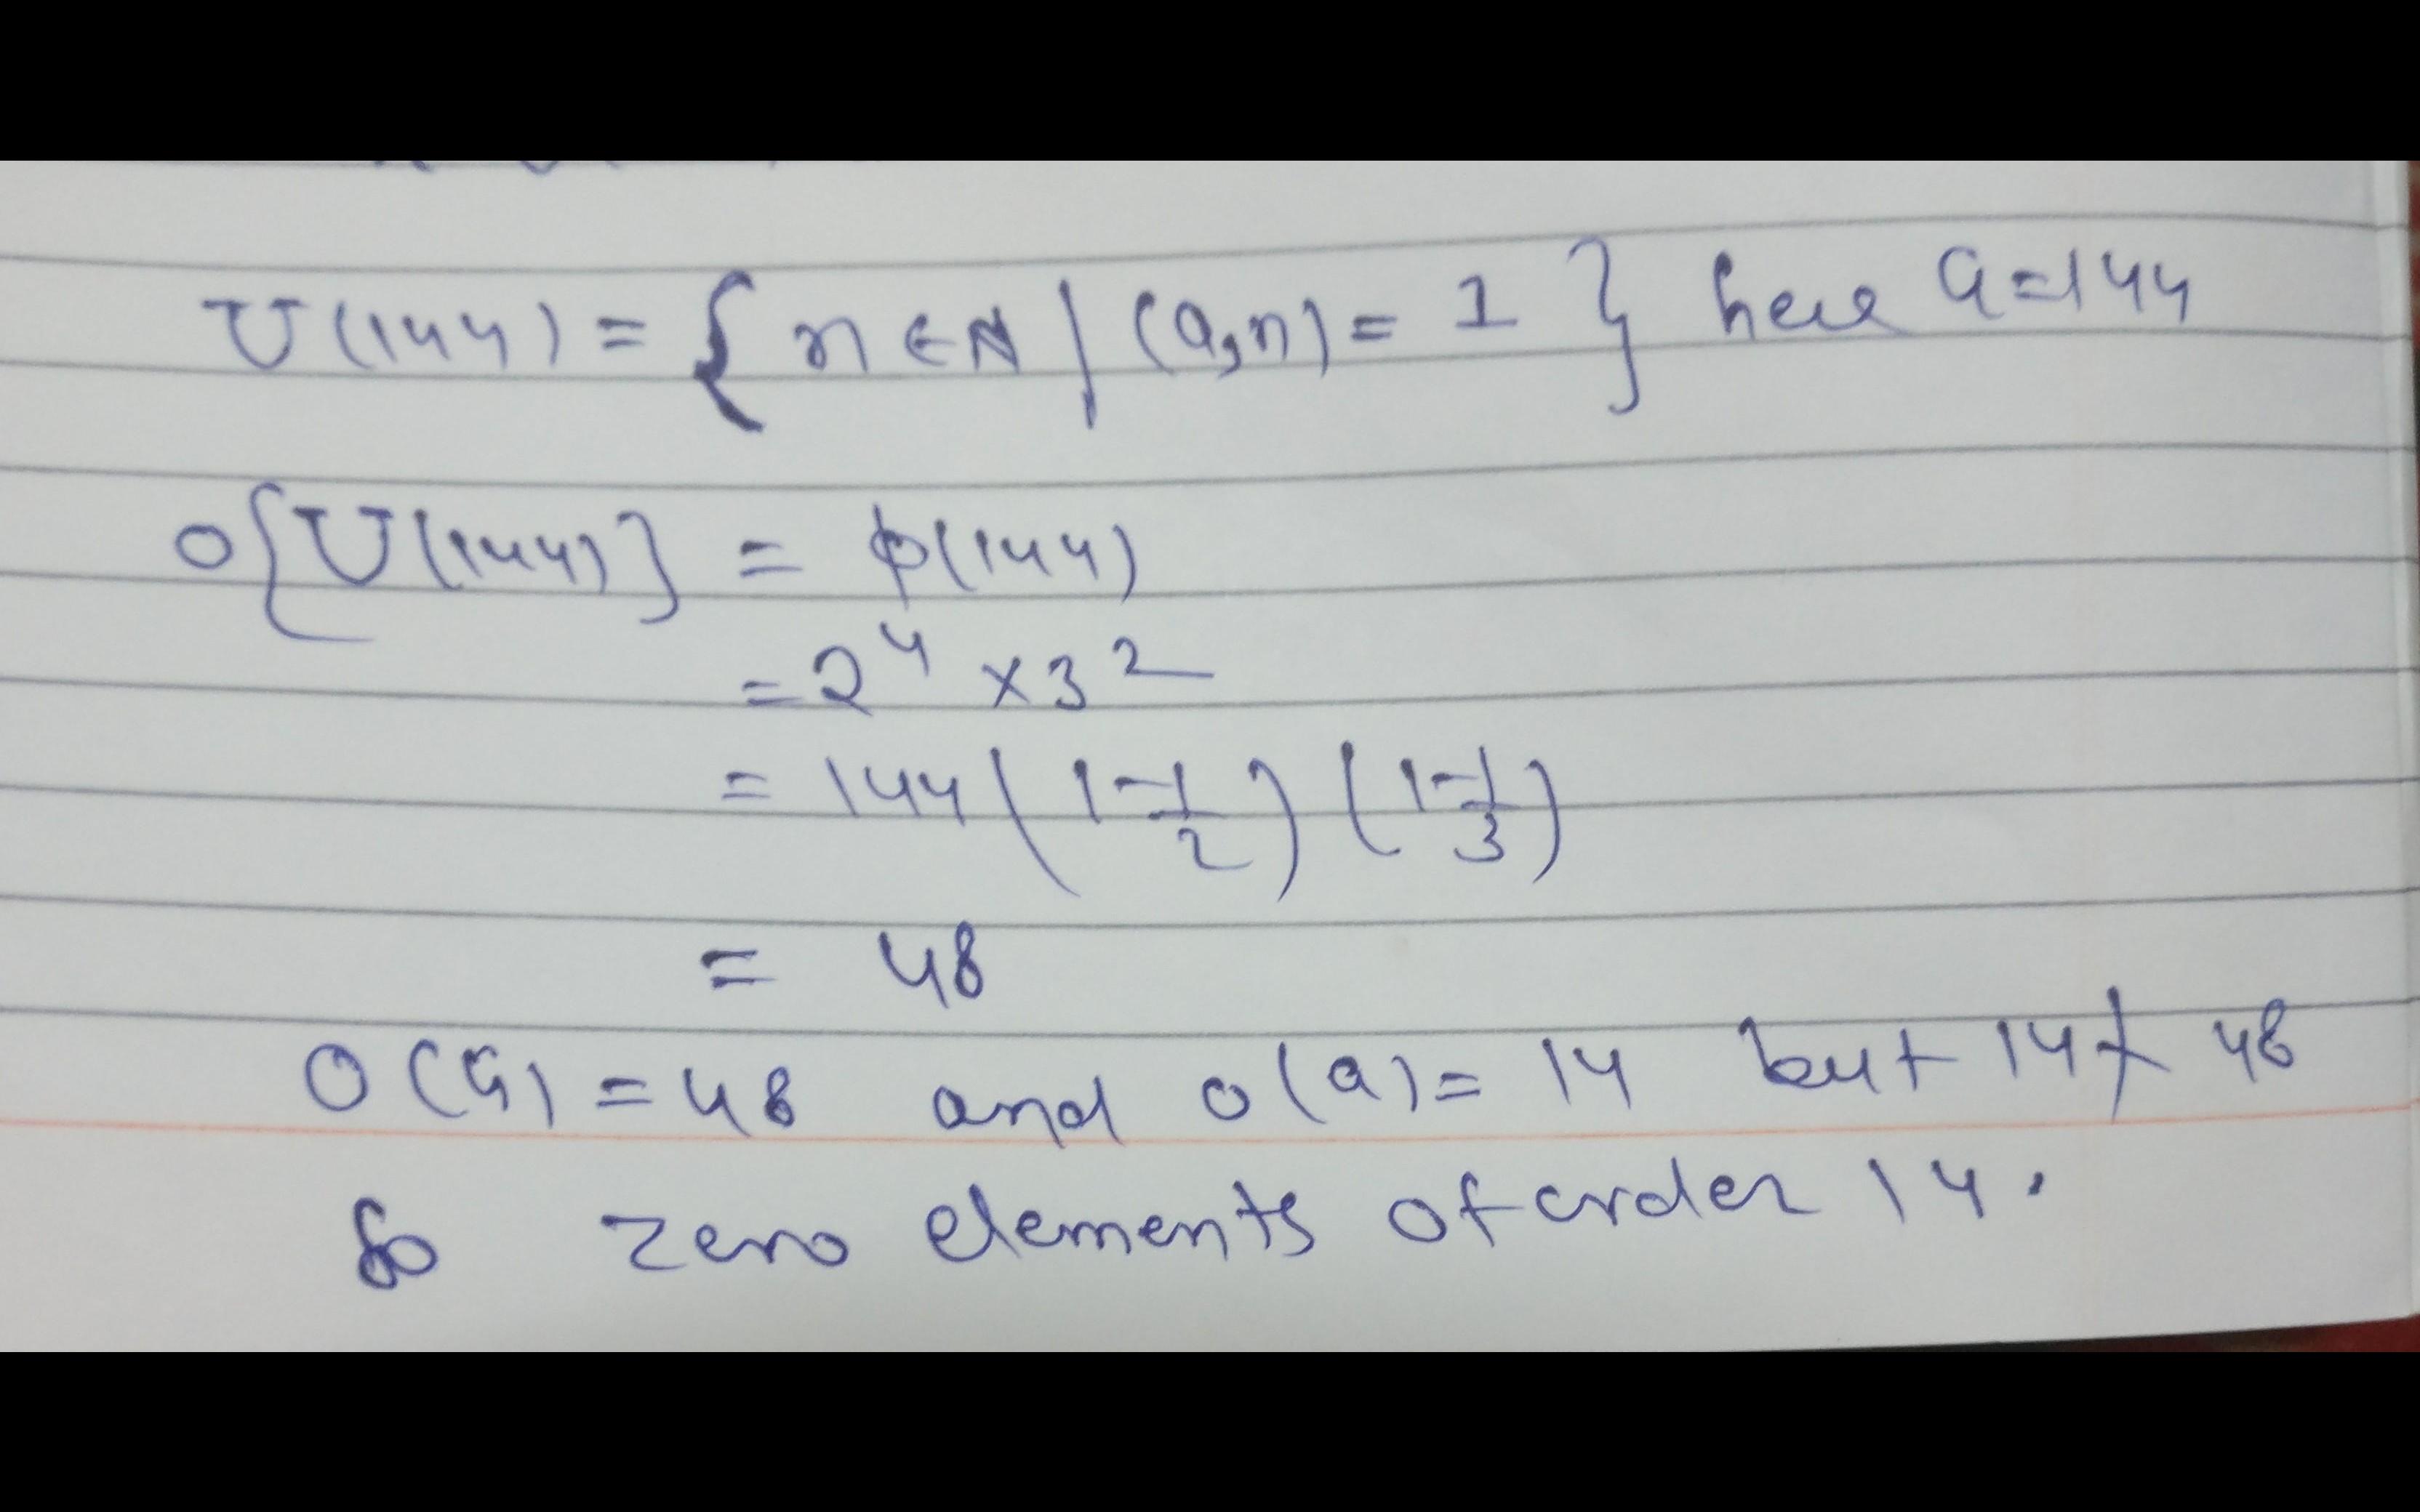 U(144) = { n ∈ N | (a,n) = 1 } here a=144
O{U(144)} = ϕ(144)
= 2⁴ × 3²
= 144 (1 - 1/2) (1 - 1/3)
= 48
O(G) = 48 and o(a) = 14 but 14 ∤ 48
So zero elements of order 14.